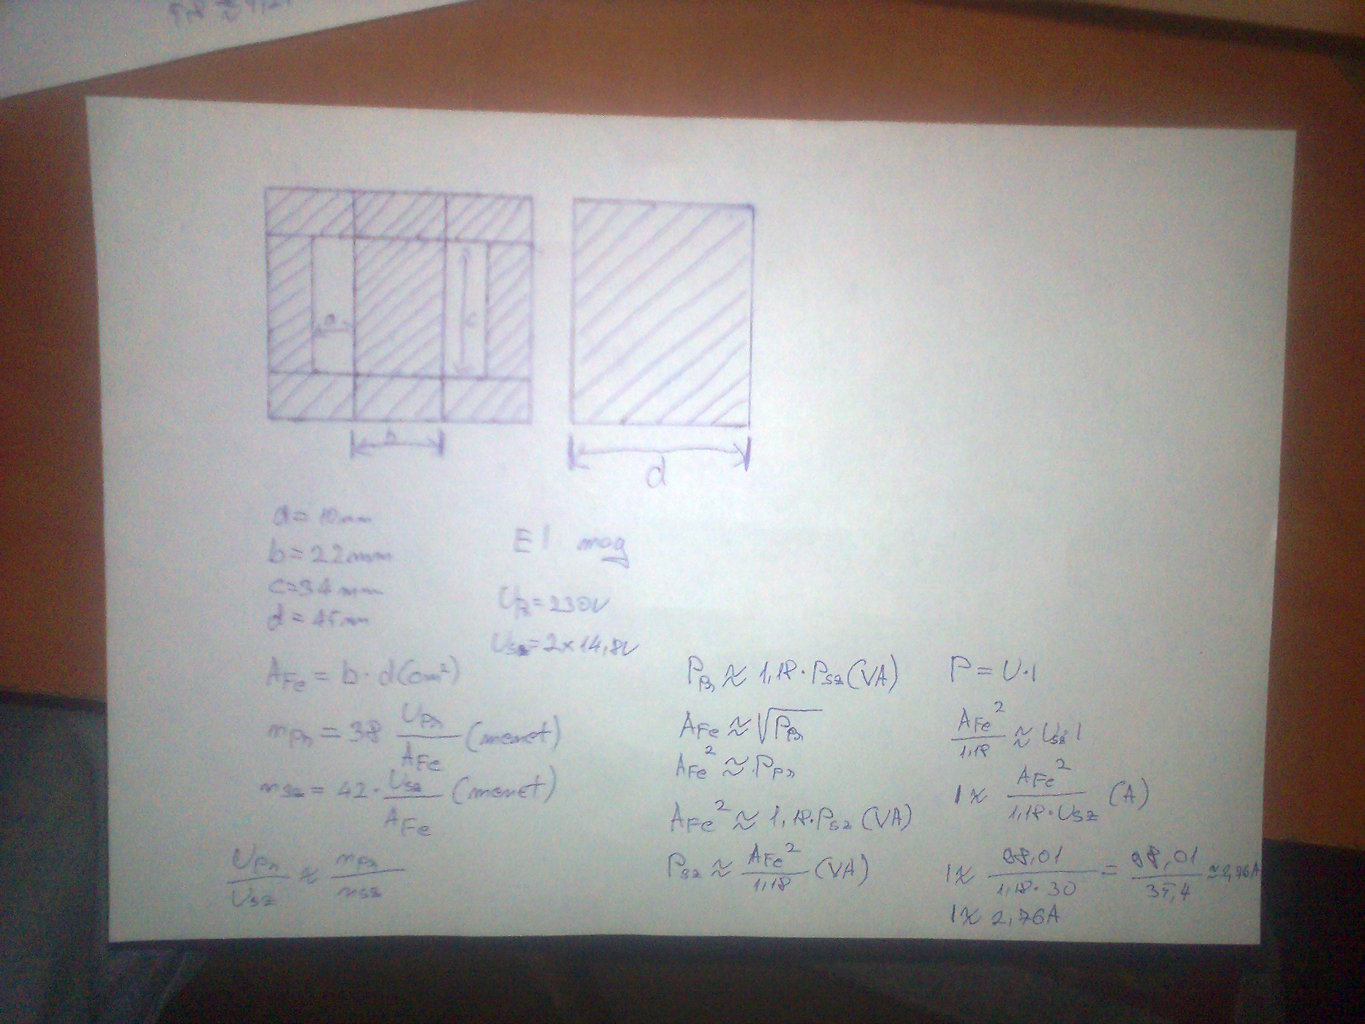 a
c
b
d
a = 10mm
b = 22mm
c = 34mm
d = 45mm
EI mag
Upr = 230V
Usz = 2×14,8V
AFe = b · d (cm²)
npr = 38 Upr/AFe (menet)
nsz = 42 · Usz/AFe (menet)
Upr/Usz ≈ npr/nsz
Ppr ≈ 1,18 · Psz (VA)
AFe ≈ √Ppr
AFe² ≈ Ppr
AFe² ≈ 1,18 · Psz (VA)
Psz ≈ AFe²/1,18 (VA)
P = U · I
AFe²/1,18 ≈ Usz · I
I ≈ AFe²/1,18 · Usz (A)
I ≈ 98,01/1,18 · 30 = 98,01/35,4 ≈ 2,76A
I ≈ 2,76A